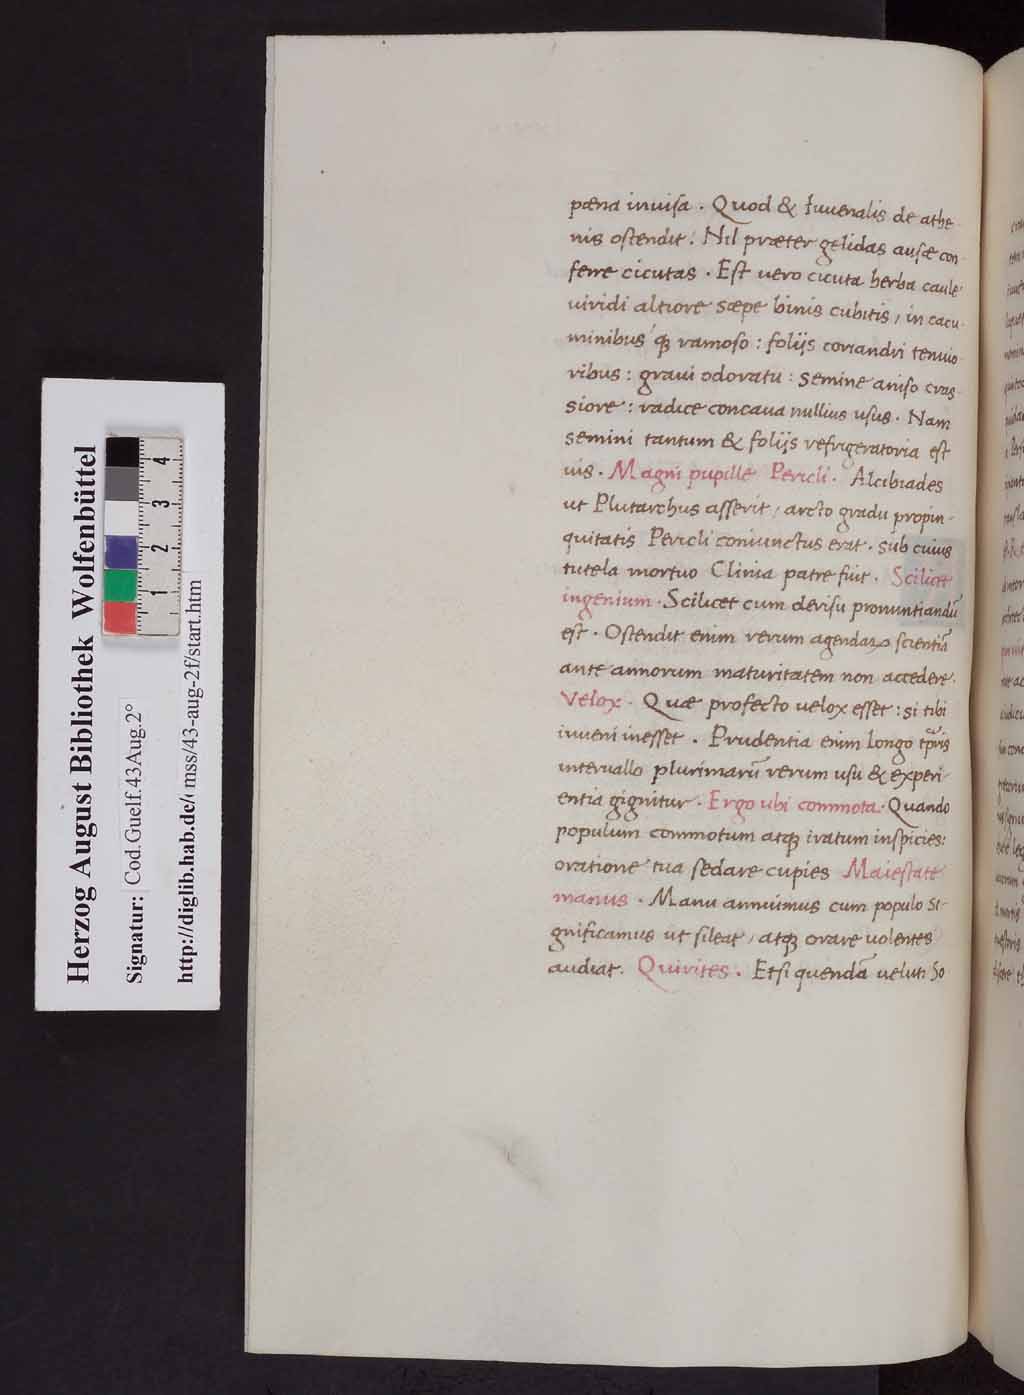 pæna inuisa . Quod & Iuuenalis de athe-
nis ostendit : Nil præter gelidas ausæ con-
ferre cicutas . Est uero cicuta herba caule
uiridi altiore sæpe binis cubitis , in cacu-
minibus qꝫ ramoso : folijs coriandri tenuio
ribus : graui odoratu : semine aniso cras-
siore : radice concaua nullius usus . Nam
semini tantum & folijs refrigeratoria est
uis . Magni pupille Pericli . Alcibiades
ut Plutarchus asserit , arcto gradu propin-
quitatis Pericli coniunctus erat . sub cuius
tutela mortuo Clinia patre fuit . Scilicet
ingenium . Scilicet cum derisu pronuntiandū
est . Ostendit enim rerum agendaꝝ scientiā
ante annorum maturitatem non accedere .
Velox . Quæ profecto uelox esset : si tibi
iuueni inesset . Prudentia enim longo tp̄ris
interuallo plurimarū rerum usu & experi-
entia gignitur . Ergo ubi commota . Quando
populum commotum atqꝫ iratum inspicies :
oratione tua sedare cupies Maiestate
manus . Manu annuimus cum populo si-
gnificamus ut sileat , atqꝫ orare uolentes
audiat . Quirites . Etsi quendā ueluti So
Herzog August Bibliothek Wolfenbüttel
Signatur: Cod.Guelf.43Aug.2°
http://diglib.hab.de/ mss/43-aug-2f/start.htm
1 2 3 4